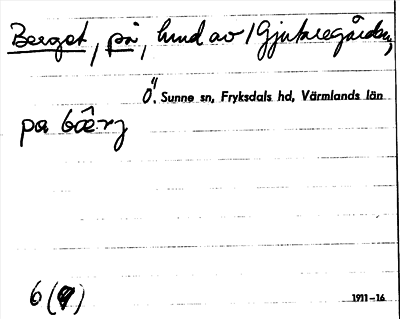 Berget, på, hmd av Gjutaregården,
Ö. Sunne sn, Fryksdals hd, Värmlands län
pa bœ̂rj
6 (9)
1911–16